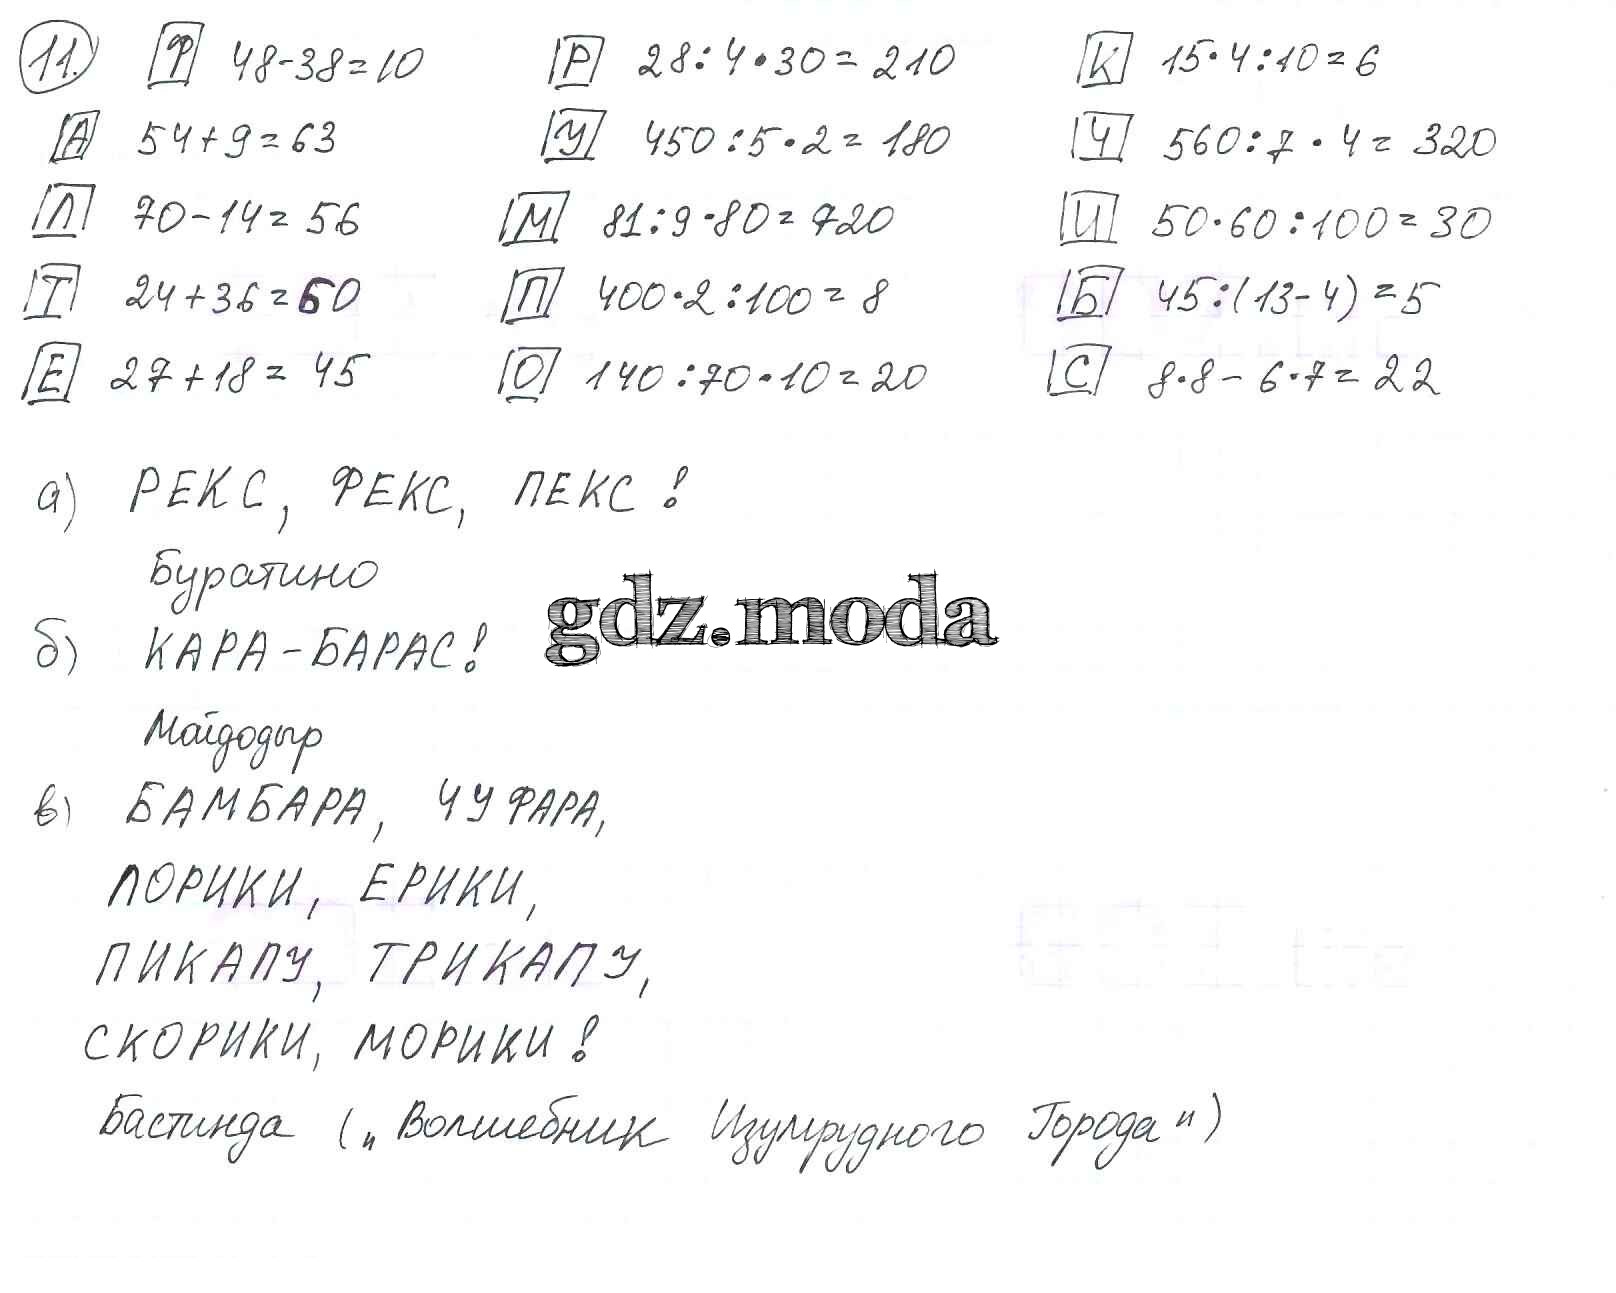 11. Ф 48-38=10 Р 28:4·30=210 К 15·4:10=6
А 54+9=63 У 450:5·2=180 Ч 560:7·4=320
Л 70-14=56 М 81:9·80=720 И 50·60:100=30
Т 24+36=60 П 400·2:100=8 Б 45:(13-4)=5
Е 27+18=45 О 140:70·10=20 С 8·8-6·7=22
а) РЕКС, ФЕКС, ПЕКС!
Буратино
gdz.moda
б) КАРА-БАРАС!
Майдодыр
в) БАМБАРА, ЧУФАРА,
ЛОРИКИ, ЕРИКИ,
ПИКАПУ, ТРИКАПУ,
СКОРИКИ, МОРИКИ!
Бастинда („Волшебник Изумрудного Города")